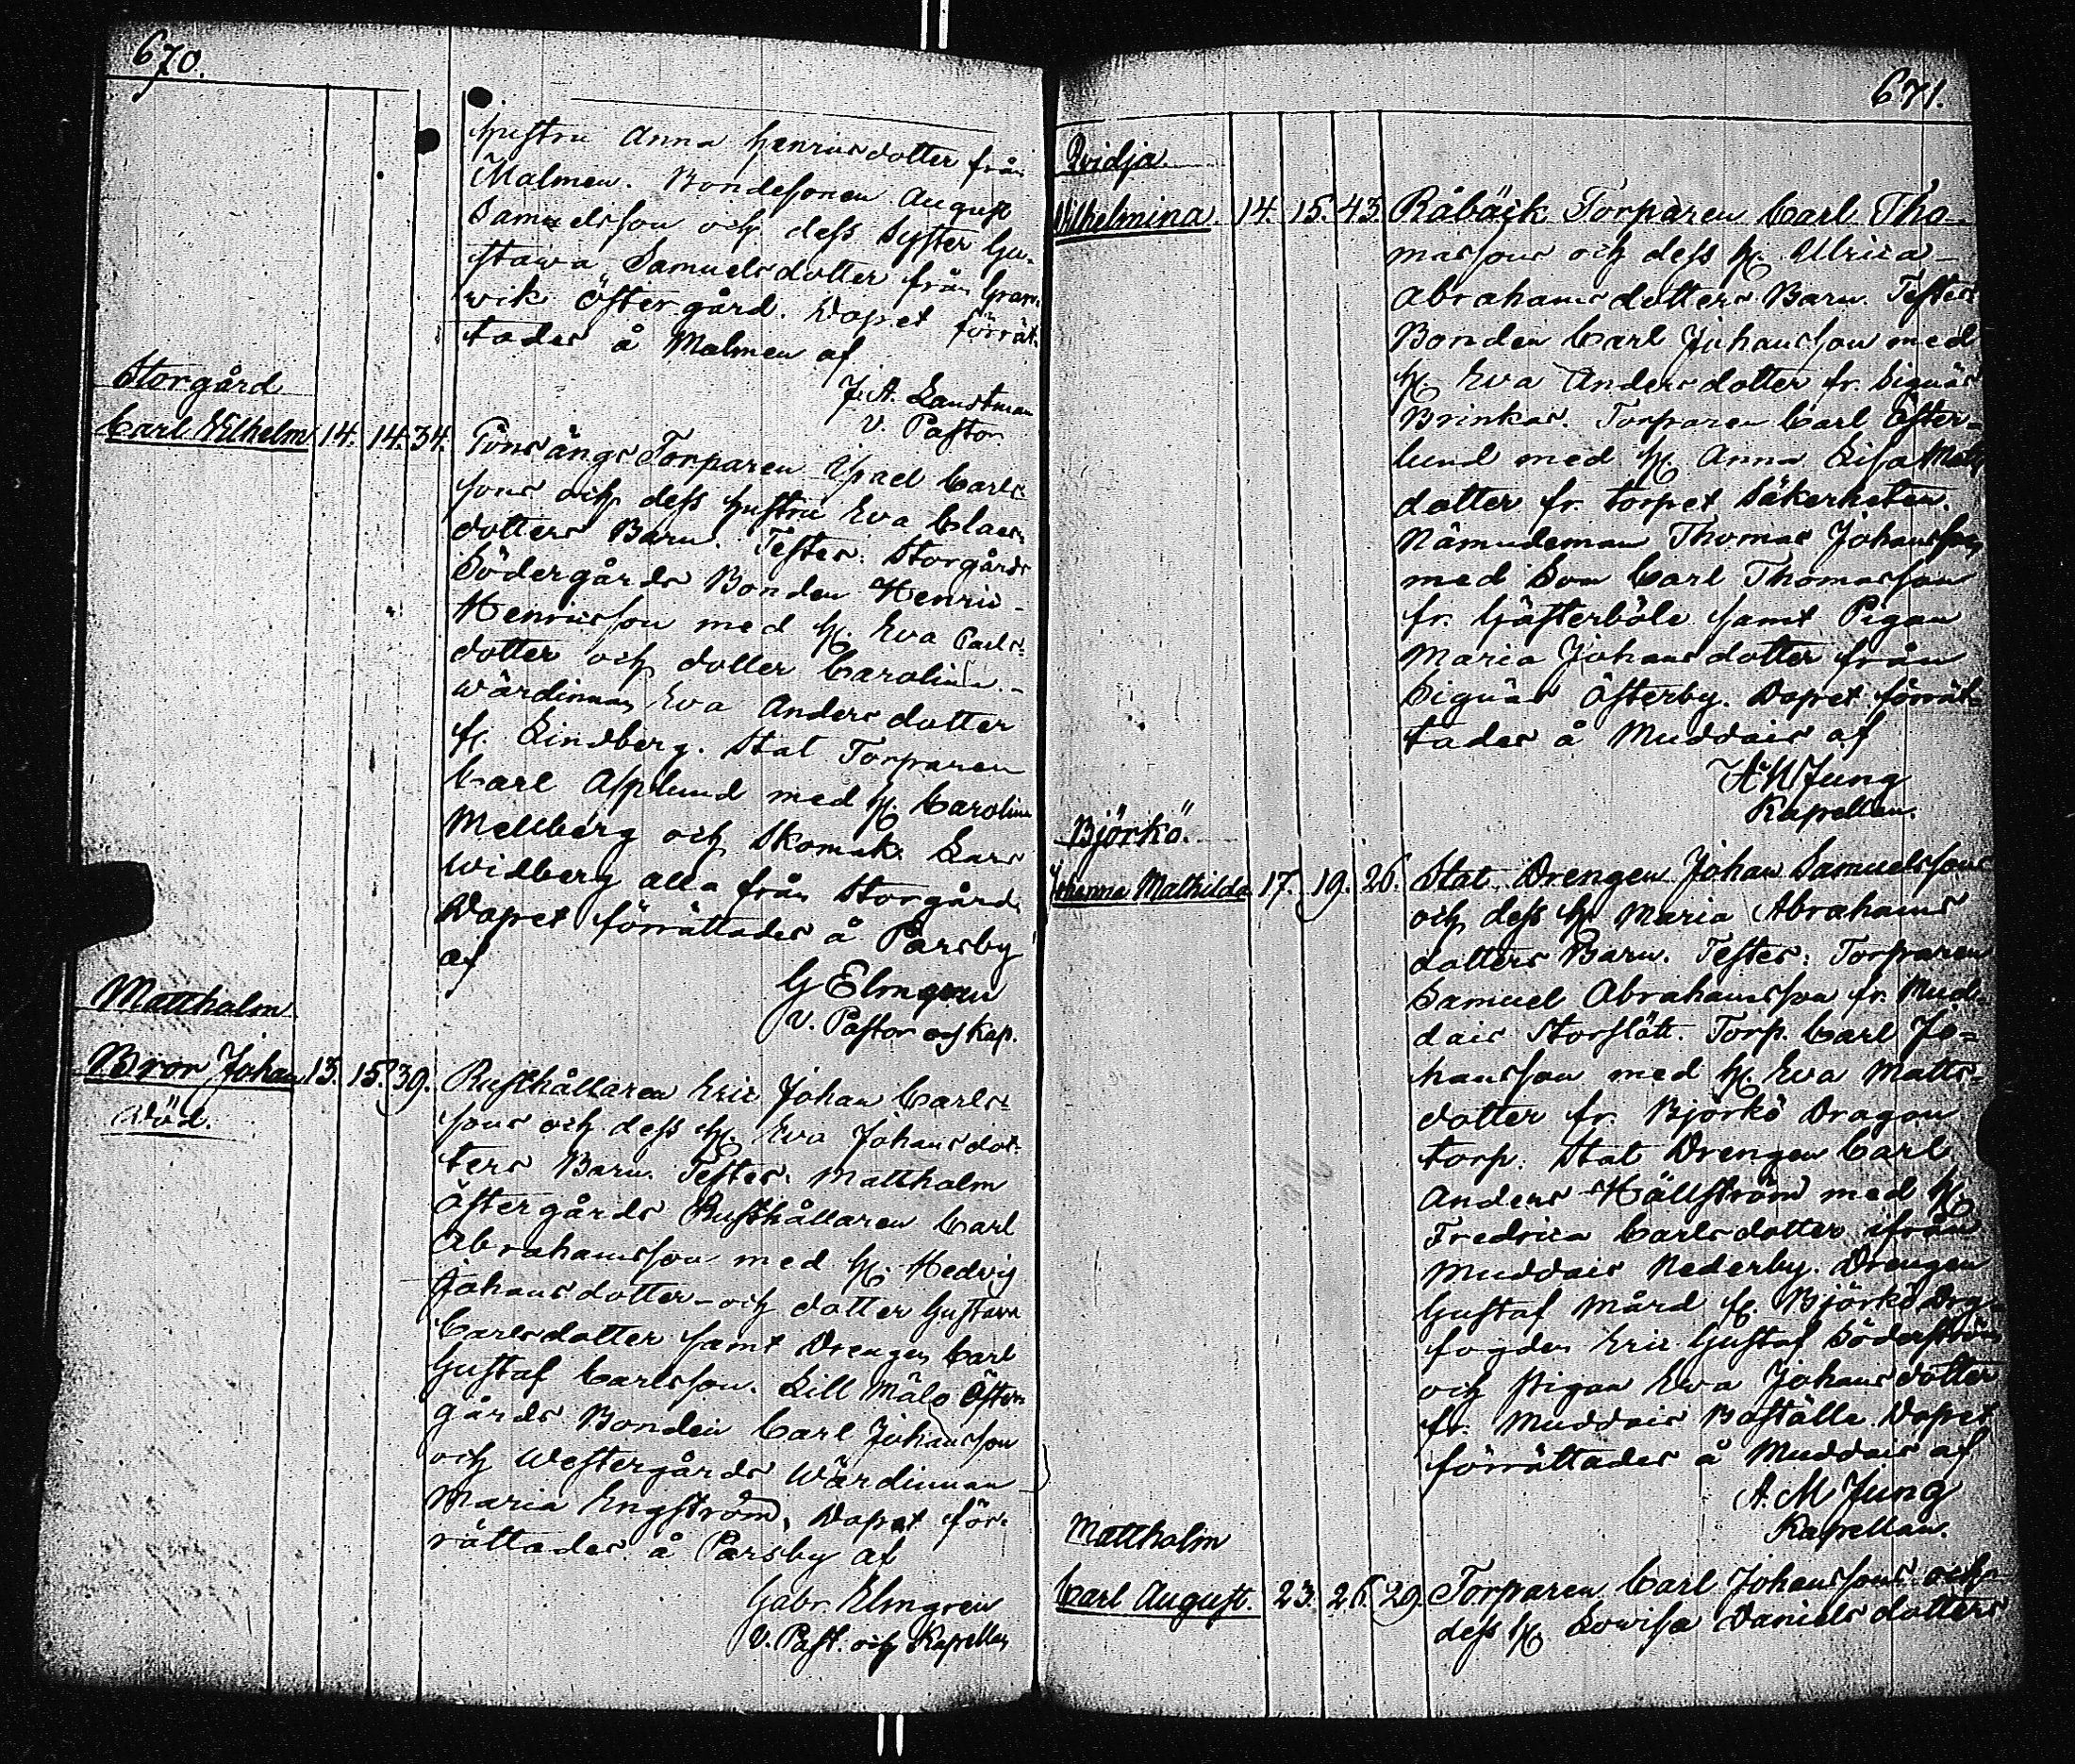 670.
hustru Anna Henricsdotter från
Malmen. Bondesonen August
Samuelsson och dess Syster Gu-
stava Samuelsdotter från Gran-
vik Östergård. Dopet förrät-
tades å Malmen af
J. A. Landtman
V. Pastor
Storgård
Carl Wilhelm 14. 14. 34. Torparen Isael Carls-
sons och dess hustru Eva Claes-
dotters Barn. Testes: Storgårds
Södergårds Bonden Henric
Henricsson med H. Eva Carls-
dotter och dotter Carolina.
Wärdinnan Eva Andersdotter
f. Lindberg. Stat Torparen
Carl Asplund med H. Carolina
Mellberg och Skomak. Lars
Widberg alla från Storgård.
Dopet förrättades å Parsby
af
G Elmgren
V. Pastor och Kap.
Mattholm
Bror Johan 13. 15. 39. Rusthållaren Eric Johan Carls-
sons och dess H. Eva Johansdot-
ters Barn. Testes: Mattholm
Östergårds Rusthållaren Carl
Abrahamsson med H. Hedvig
Johansdotter och dotter Gustava
Carlsdotter samt Drengen Carl
Gustaf Carlsson. Lill Mälo Öster-
gårds Bonden Carl Johansson
och Westergårds Wärdinnan
Maria Engström. Dopet för-
rättades å Parsby af
Gabr. Elmgren
V. Past. och Kapellan
död.
671.
Qvidja.
Wilhelmina 14. 15. 43. Råbäck Torparen Carl Tho-
massons och dess H. Ulrica
Abrahamsdotters Barn. Testes
Bonden Carl Johansson med
H. Eva Andersdotter fr. Signäs
Brinkas. Torparen Carl Öster-
lund med H. Anna Lisa Matts
dotter fr. torpet Säkerheten.
Nämndeman Thomas Johansson
med Son Carl Thomasson
fr. Gästerböle samt Pigan
Maria Johansdotter från
Signäs Österby. Dopet förrät-
tades å Muddais af
A M Jung
Kapellan.
Björkö.
Johanna Mathilda 17. 19. 26. Stat Drengen Johan Samuelssons
och dess H. Maria Abrahams
dotters Barn. Testes: Torparen
Samuel Abrahamsson fr. Mud-
dais Storslätt. Torp. Carl Jo-
hansson med H. Eva Matts-
dotter fr. Björkö Dragon
torp. Stat Drengen Carl
Anders Hällström med H.
Fredrica Carlsdotter ifrån
Muddais Nederby. Drengen
Gustaf Mård f. Björkö Drg-
fogden Eric Gustaf Söderström
och Pigan Eva Johansdotter
fr. Muddais Boställe. Dopet
förrättades å Muddais af
A. M Jung
Kapellan.
Mattholm
Carl August. 23. 26. 29. Torparen Carl Johanssons och
dess H. Lovisa Danielsdotters